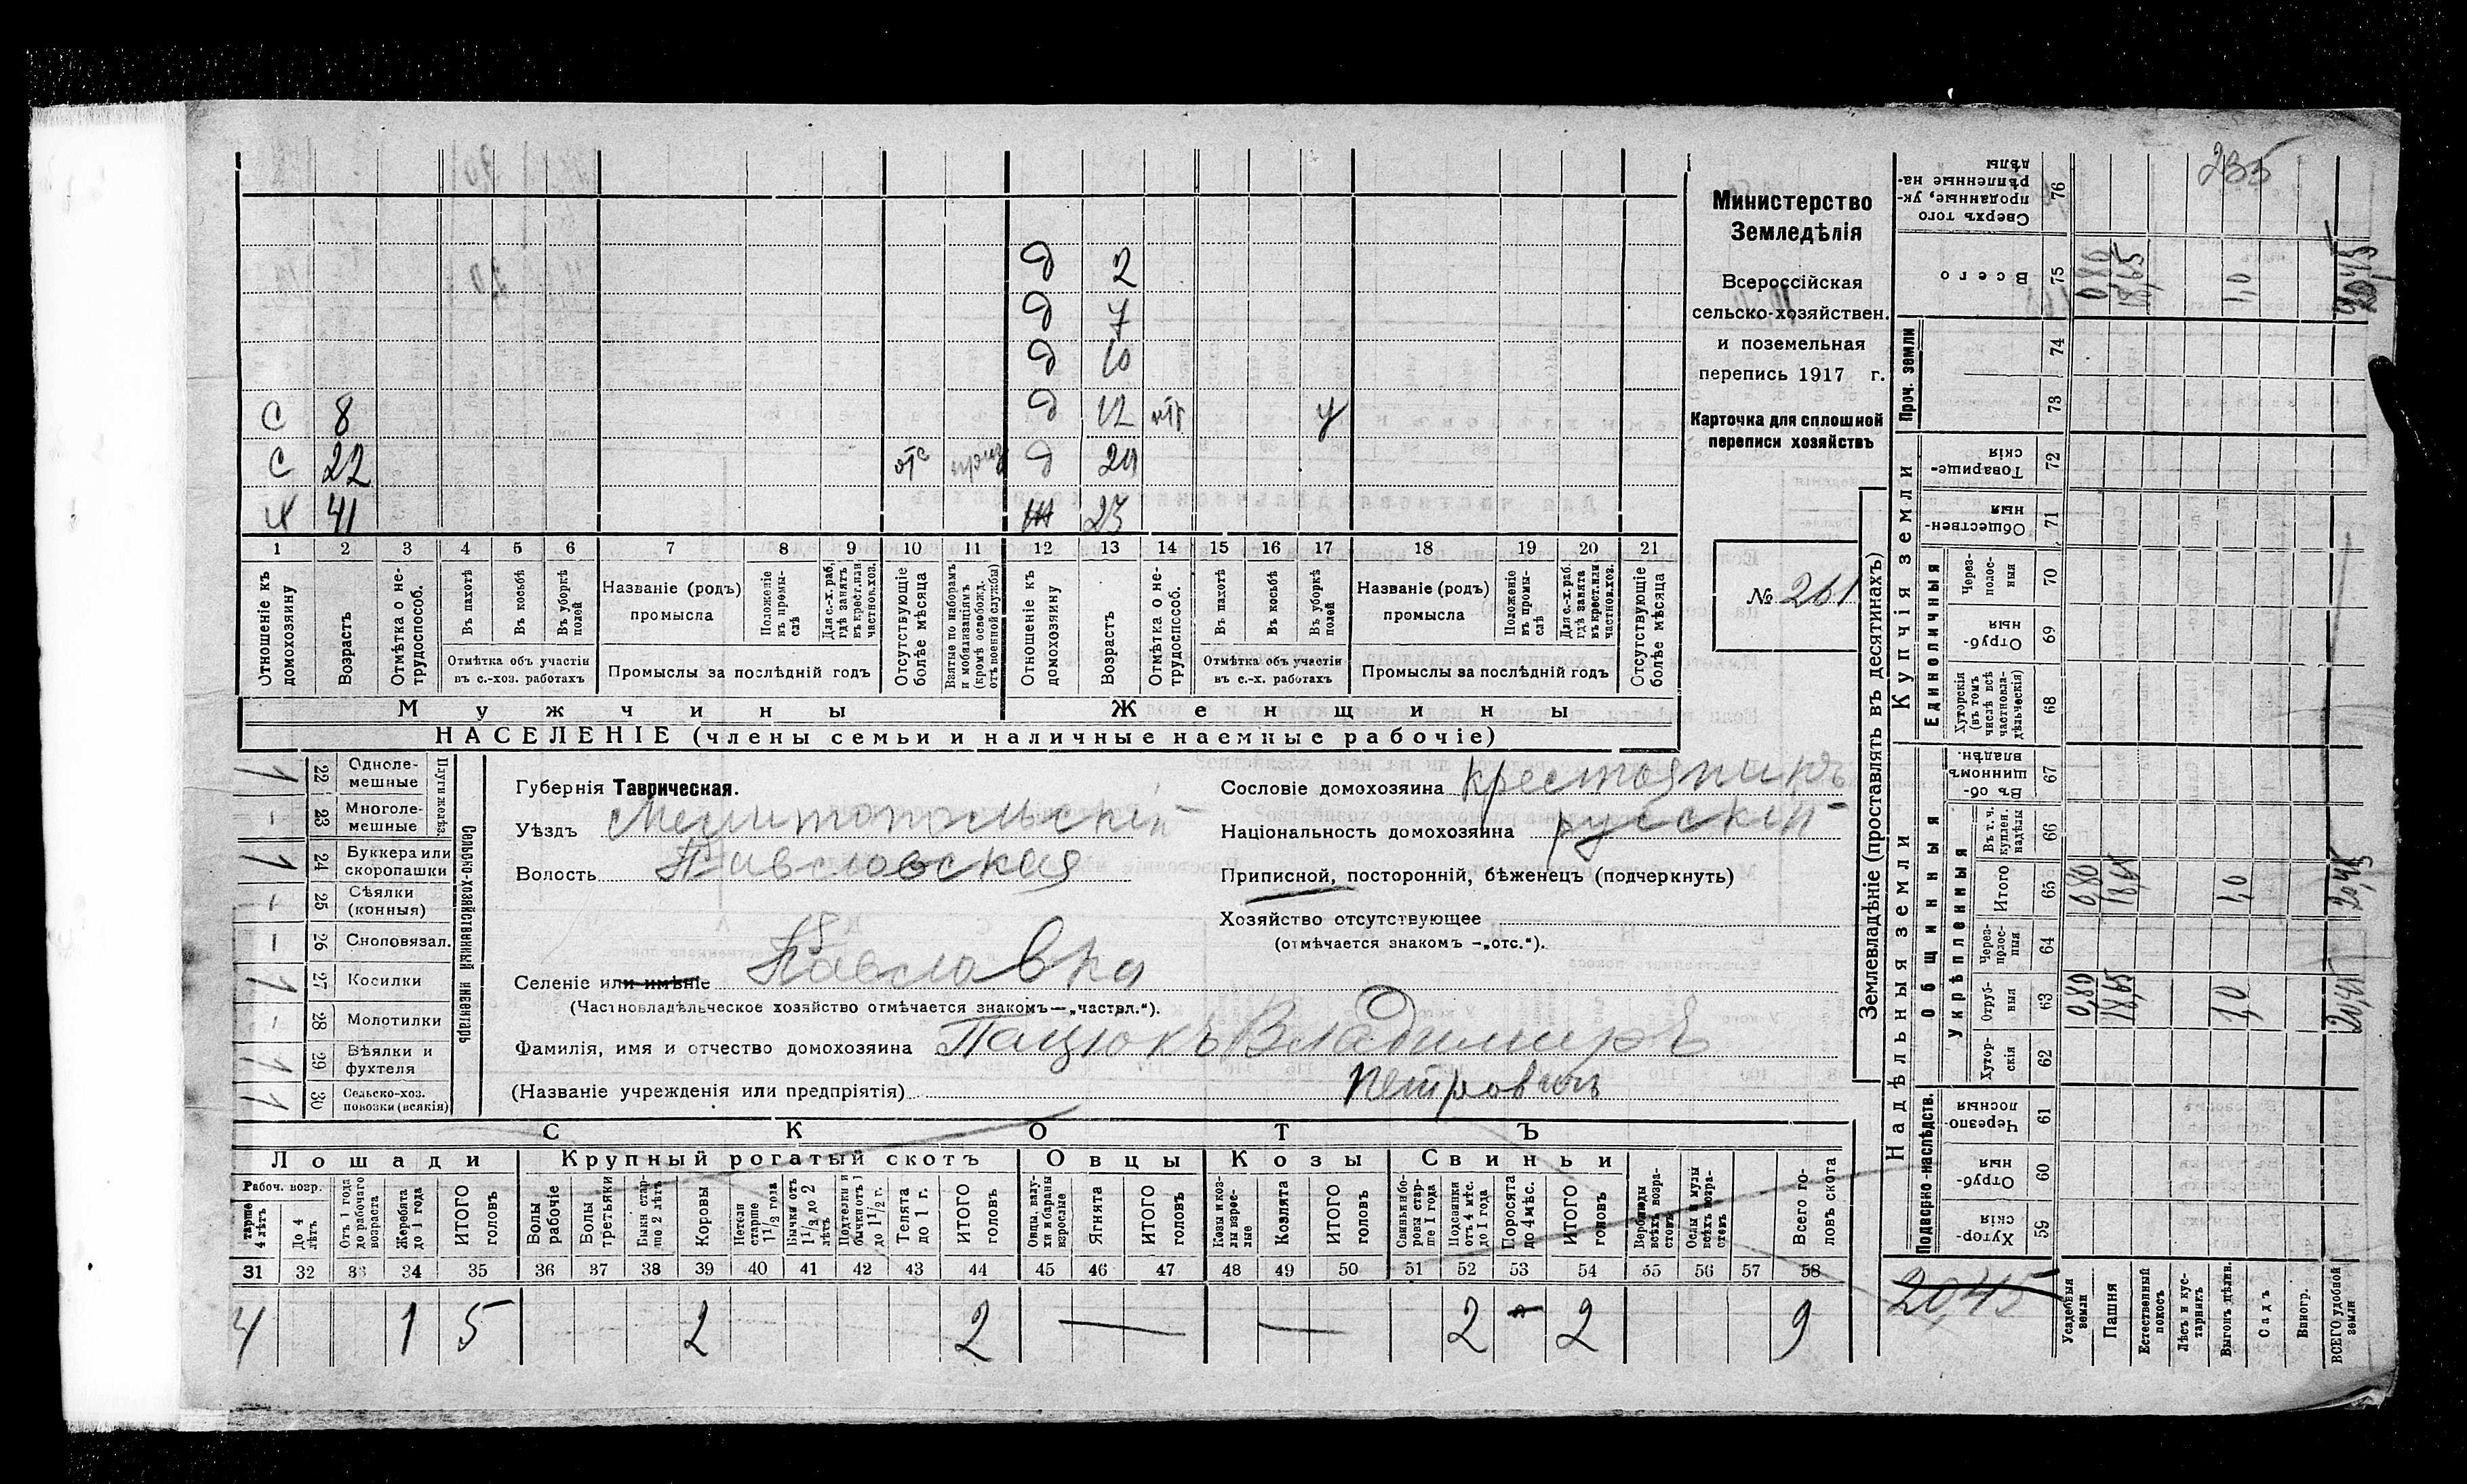 235
Министерство
Земледѣлія
Всероссійская
сельско-хозяйствен.
и поземельная
перепись 1917 г.
Карточка для сплошной
переписи хозяйствъ
№ 261
д 2
д 7
д 10
С 8 д 12 у
С 22 отс д
41
1 2 3 4 5 6 7 8 9 10 11 12 13 14 15 16 17 18 19 20 21
Отношеніе къ домохозяину
Возрастъ
Отмѣтка о не-трудоспособ.
Въ пахотѣ
Въ косьбѣ
Въ уборкѣ полей
Отмѣтка объ участіи въ с.-хоз. работахъ
Названіе (родъ) промысла
Положеніе въ промы-слѣ
Для с.-х. раб. гдѣ занятъ въ крест. или частновл. хоз.
Промыслы за послѣдній годъ
Отсутствующіе болѣе мѣсяца
Взятые по наборамъ и мобилизаціямъ (кромѣ освобожд. отъ военной службы)
Отношеніе къ домохозяину
Возрастъ
Отмѣтка о не-трудоспособ.
Въ пахотѣ
Въ косьбѣ
Въ уборкѣ полей
Отмѣтка объ участіи въ с.-х. работахъ
Названіе (родъ) промысла
Положеніе въ промы-слѣ
Для с.-х. раб. гдѣ занята въ крест. или частнов. хоз.
Промыслы за послѣдній годъ
Отсутствующіе болѣе мѣсяца
Мужчины Женщины
НАСЕЛЕНІЕ (члены семьи и наличные наемные рабочіе)
Сельско-хозяйственный инвентарь
Плуги желѣз.
Одноле-мешные 22 1
Многоле-мешные 23 –
Буккера или скоропашки 24 1
Сѣялки (конныя) 25 –
Сноповязал. 26 –
Косилки 27 1
Молотилки 28 –
Вѣялки и фухтеля 29 1
Сельско-хоз. повозки (всякія) 30 1
Губернія Таврическая.
Уѣздъ Мелитопольскій
Волость Павловская
Селеніе или имѣніе Павловка
(Частновладѣльческое хозяйство отмѣчается знакомъ—„частвл.“).
Фамилія, имя и отчество домохозяина Пацюкъ Владимиръ
(Названіе учрежденія или предпріятія) Петровичъ
Сословіе домохозяина крестьянинъ
Національность домохозяина русскій
Приписной, посторонній, бѣженецъ (подчеркнуть)
Хозяйство отсутствующее
(отмѣчается знакомъ —„отс.“).
СКОТЪ
Лошади Крупный рогатый скотъ Овцы Козы Свиньи
Рабоч. возр.
старше 4 лѣтъ
До 4 лѣтъ
Отъ 1 года до рабочаго возраста
Жеребята до 1 года
ИТОГО головъ
Волы рабочіе
Волы третьяки
Быки стар-ше 2 лѣтъ
Коровы
Нетели старше 1 1/2 года
Бычки отъ 1 1/2 до 2 лѣтъ
Подтелки и бычки отъ 1 до 1 1/2 г.
Телята до 1 г.
ИТОГО головъ
Овцы, валу-хи и бараны взрослые
Ягнята
ИТОГО головъ
Козы и коз-лы взрос-лые
Козлята
ИТОГО головъ
Свиньи и бо-ровы стар-ше 1 года
Подсвинки отъ 4 мѣс. до 1 года
Поросята до 4 мѣс.
ИТОГО головъ
Верблюды всѣхъ возра-стовъ
Ослы и мулы всѣхъ возра-стовъ
Всего го-ловъ скота
31 32 33 34 35 36 37 38 39 40 41 42 43 44 45 46 47 48 49 50 51 52 53 54 55 56 57 58
4 1 5 2 2 — — 2 2 9
Землевладѣніе (проставлять въ десятинахъ)
Надѣльныя земли
Купчія земли
Проч. земли
Подворно-наслѣдств.
Общинныя
Укрѣпленныя
Единоличныя
Хутор-скія 59
Отруб-ныя 60
Черезпо-лосныя 61
Хутор-скія 62
Отруб-ныя 63
Через-полос-ныя 64
Итого 65
Въ т. ч. куплен. надѣлы 66
Въ об-щинномъ владѣн. 67
Хуторскія (въ томъ числѣ всѣ частновла-дѣльческія) 68
Отруб-ныя 69
Через-полос-ныя 70
Обществен-ныя 71
Товарище-скія 72
73
74
Всего 75
Сверхъ того проданные, ук-рѣпленные на-дѣлы 76
20,45
Усадебныя земли 0,80 0,80 0,80
Пашня 18,65 18,65 18,65
Естественный покосъ
Лѣсъ и кус-тарникъ
Выгонъ цѣлин. 1,0 1,0 1,0
Садъ
Виногр.
ВСЕГО удобной земли 20,45 20,45 20,45